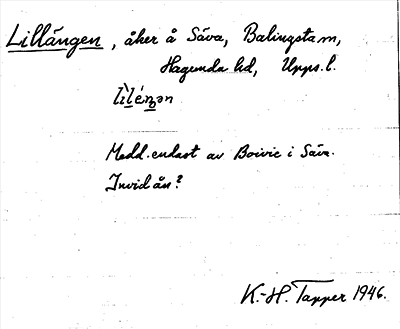 Lillängen, åker å Säva, Balingstam,
Hagunda hd, Upps.l.
Medd. endast av Boivie i Säva.
Invid ån?
K.-H. Tapper 1946.